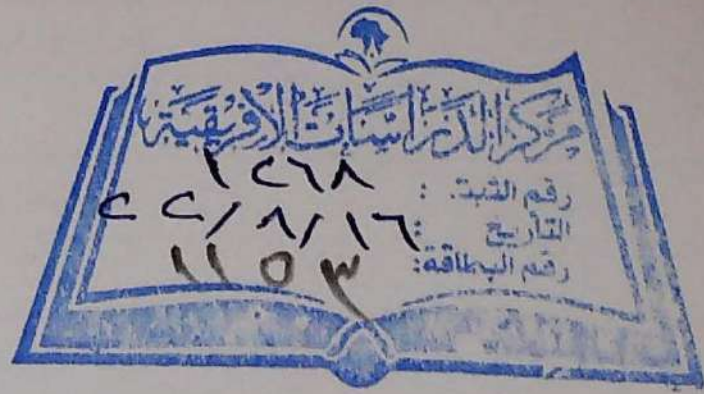 مركز الدراسات الأفريقية
رقم الثبت : ١٢٦٨
التأريخ : ٢٢/٨/١٦
رقم البطاقة: ١١٥٣